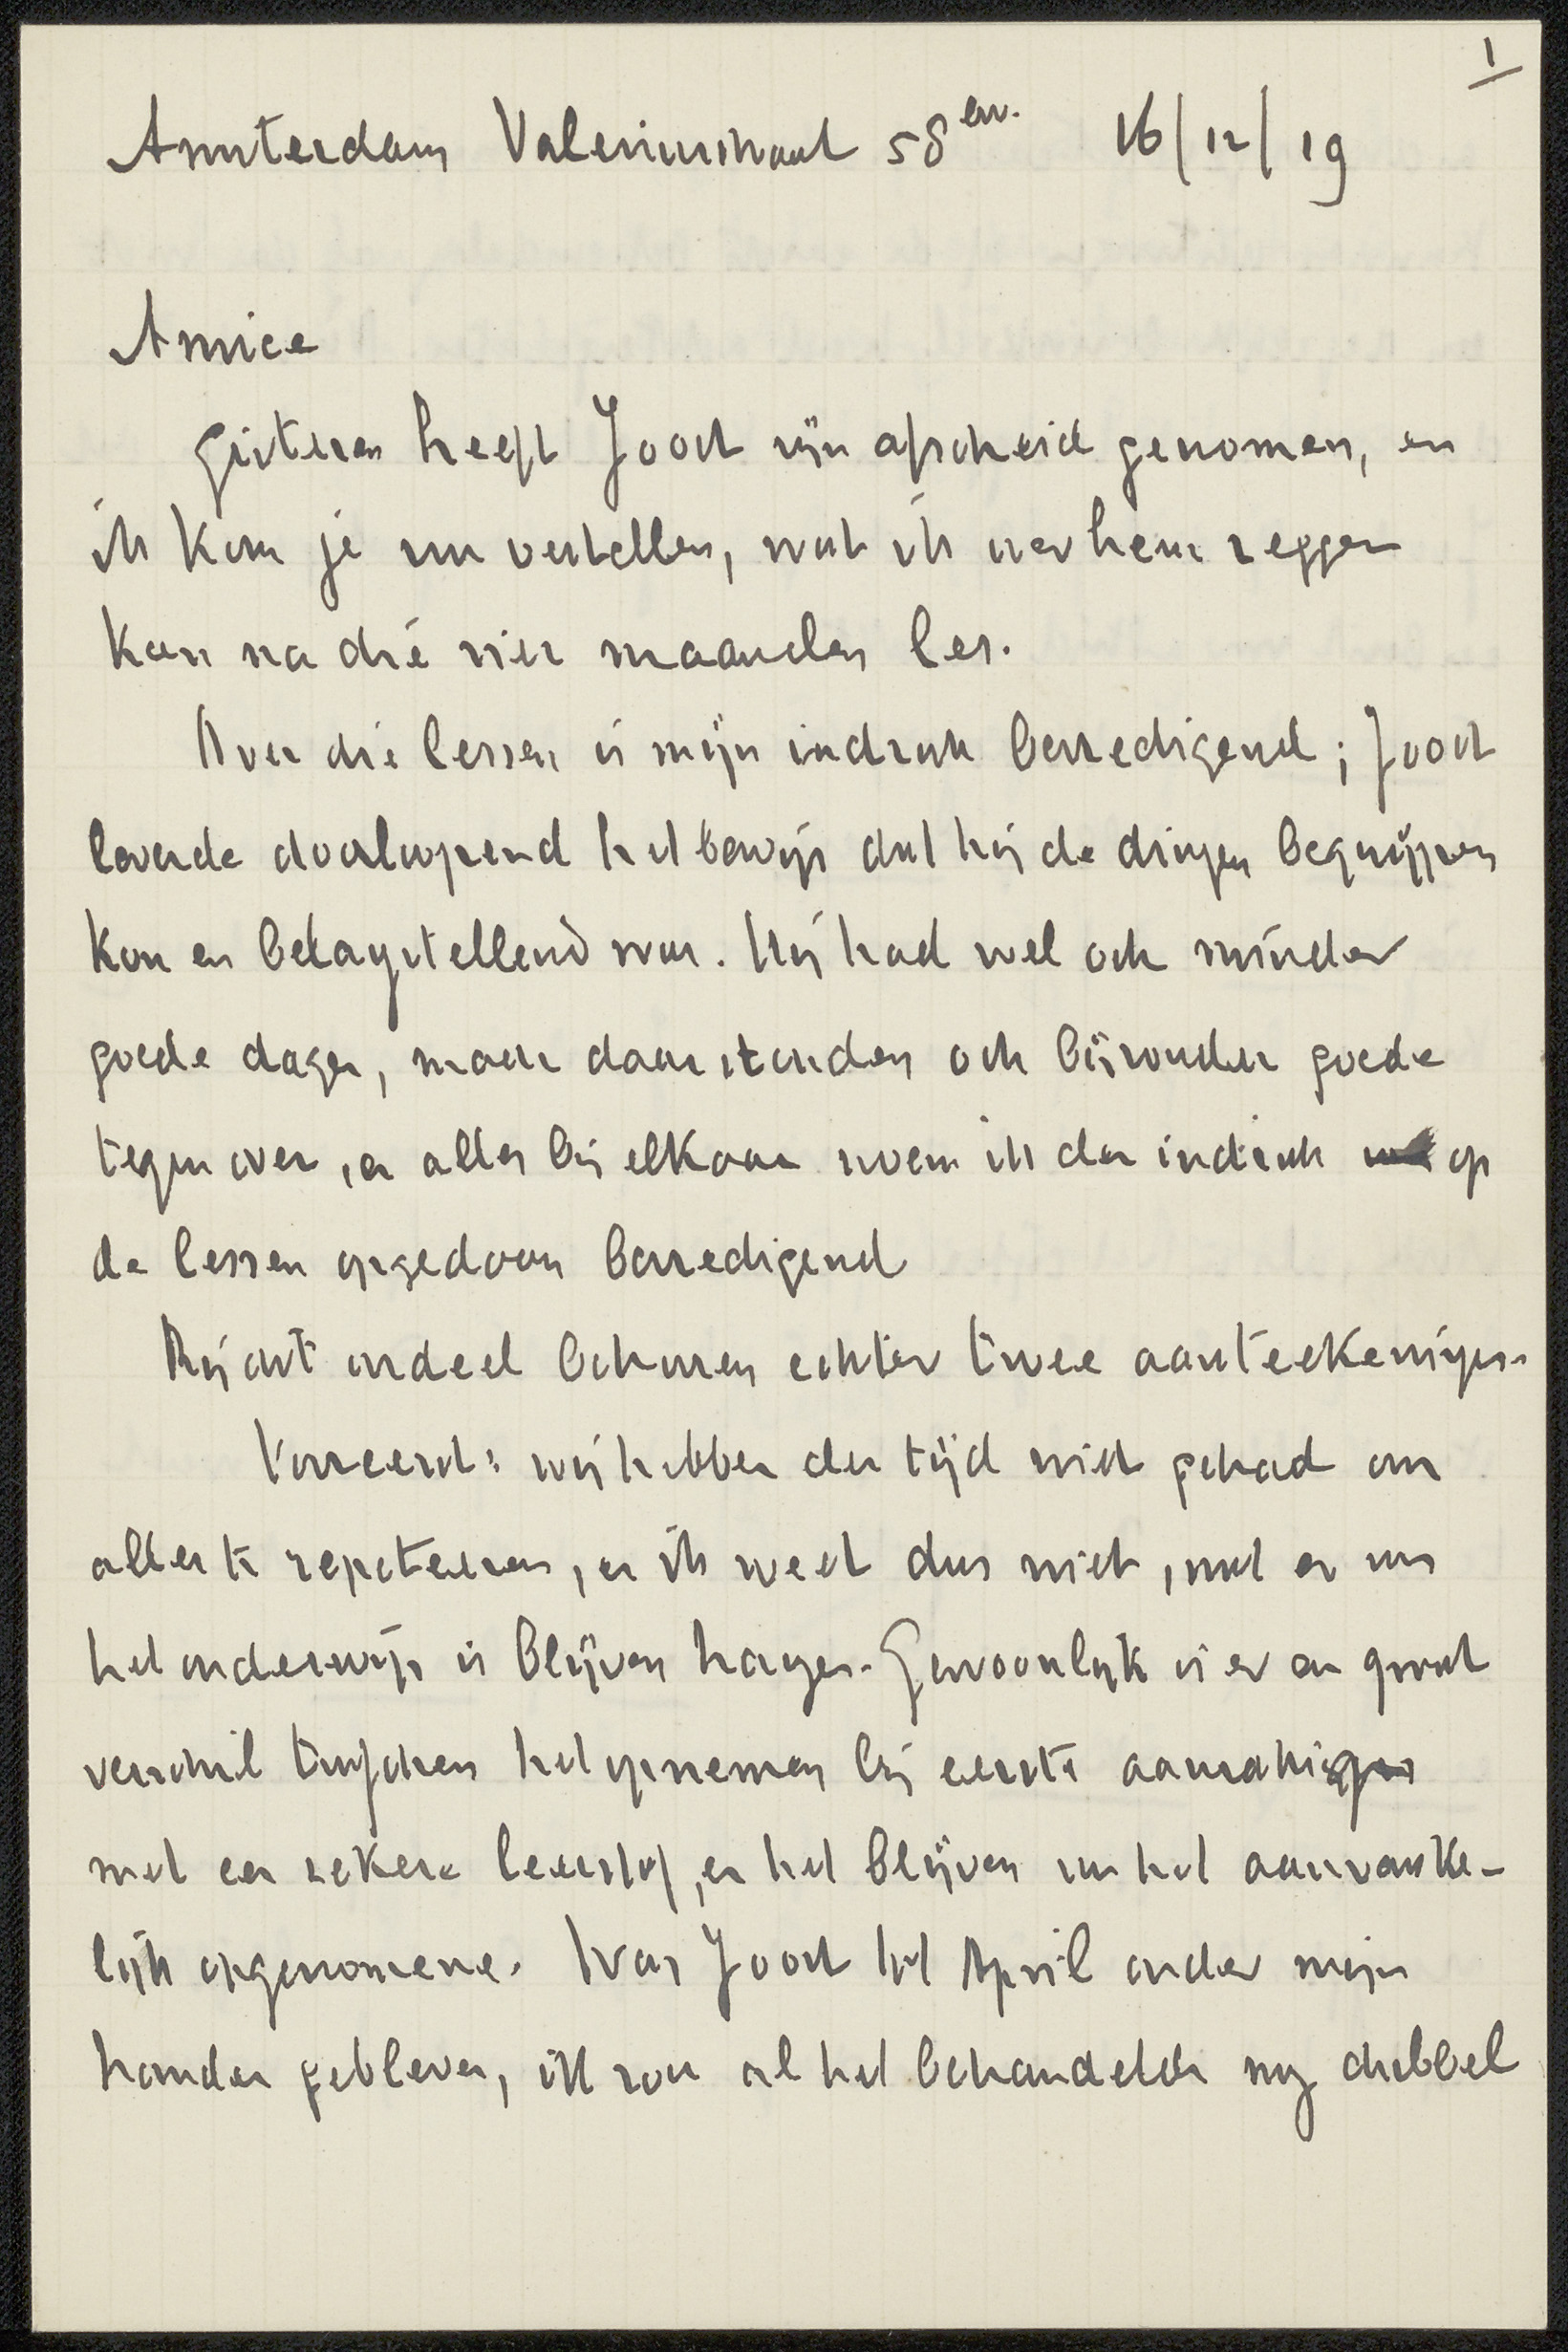 1
Amsterdam Valeriusstraat 58 en. 16/12/19
Amice
Gisteren heeft Joost zijn afscheid genomen, en
ik kom je nu vertellen, wat ik over hem zeggen
kan na drie vier maanden les.
Over die lessen is mijn indruk bevredigend; Joost
leverde doorloopend het bewijs dat hij de dingen begrijpen
kon en belangstellend was. Hij had wel ook minder
goede dagen, maar daar stonden ook bijzonder goede
tegenover, en alles bij elkaar noem ik den indruk op
de lessen opgedaan bevredigend
Bij dit oordeel behooren echter twee aanteekeningen.
Vooreerst: wij hebben den tijd niet gehad om
alles te repeteeren, en ik weet dus niet, wat er van
het onderwijs is blijven hangen. Gewoonlijk is er een groot
verschil tusschen het opnemen bij eerste aanraking
met een zekere leerstof, en het blijven van het aanvanke-
lijk opgenomene. Was Joost tot April onder mijn
handen gebleven, ik zou al het behandelde nog dubbel